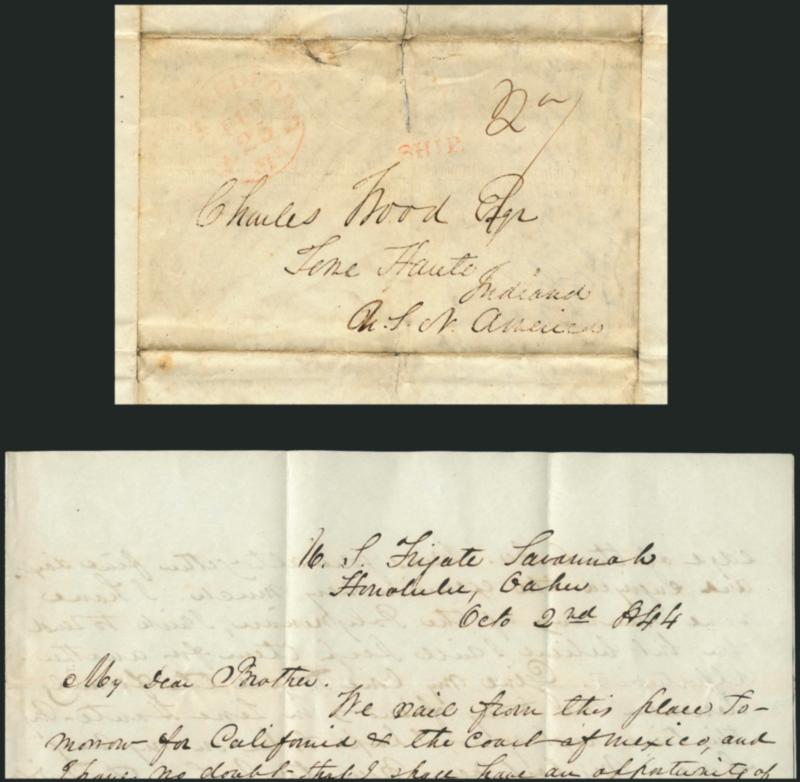 BEDFORD
SHIP
27
Charles Wood Esqr
Terre Haute
Indiana
U. S. N. America
U. S. Frigate Savannah
Honolulu, Oahu
Octo 2nd 1844
My Dear Brother.
We sail from this place to-
morrow for California & the coast of Mexico, and
I have no doubt that I shall have an opportunity of